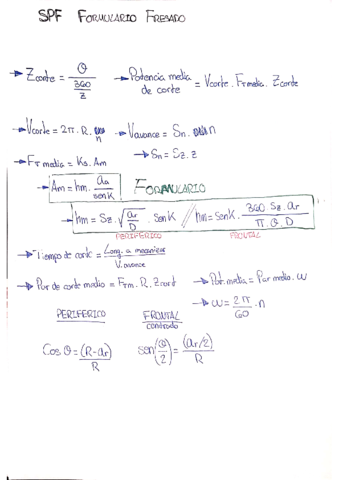 SPF FORMULARIO FRESADO
→ Zcorte = θ / (360 / z) → Potencia media de corte = Vcorte . FTmedia . Zcorte
→ Vcorte = 2π . R . n → Vavance = Sn . n
→ FT media = Ks . Am → Sn = Sz . z
→ Am = hm . aa / senK FORMULARIO
→ hm = Sz . √(ar / D) . senK // hm = senK . 360 Sz . ar / (π . θ . D)
PERIFERICO FRONTAL
→ Tiempo de corte = Long. a mecanizar / V.avance
→ Par de corte medio = FTm . R . Zcort → Pot. media = Par medio . ω
→ ω = 2π / 60 . n
PERIFERICO FRONTAL
centrado
Cos θ = (R - ar) / R sen(θ / 2) = (ar/2) / R